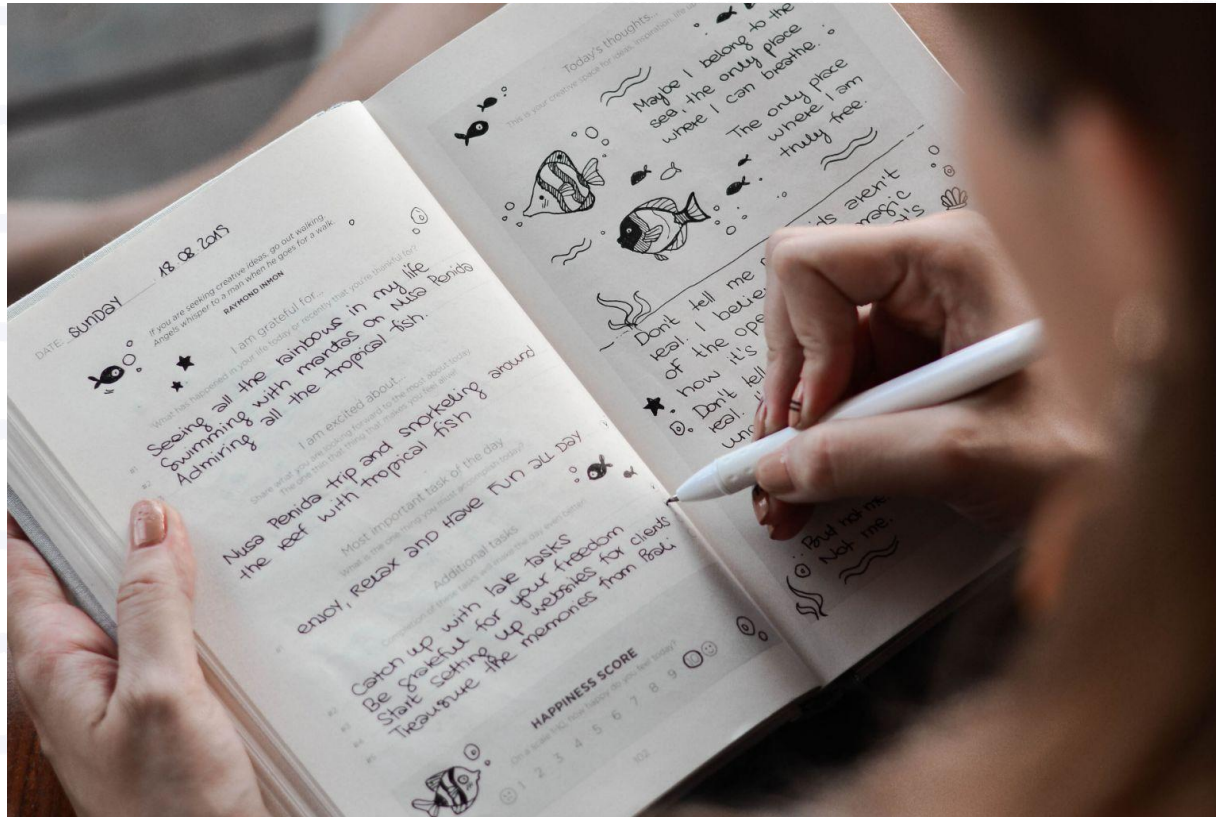 DATE: SUNDAY 18.08.2019
If you are seeking creative ideas, go out walking.
Angels whisper to a man when he goes for a walk.
RAYMOND INMON
I am grateful for...
What has happened in your life today or recently that you're thankful for?
Seeing all the rainbows in my life
Swimming with mantas on Nusa Penida
Admiring all the tropical fish.
I am excited about...
Share what you are looking forward to the most about today.
The one thing that makes you feel alive!
Nusa Penida trip and snorkeling around
the reef with tropical fish
Most important task of the day
What is the one thing you must accomplish today?
#1
ENJOY, RELAX AND HAVE FUN ALL DAY
Additional tasks
Completion of these tasks will make the day even better!
#2 Catch up with late tasks
#3 Be grateful for your freedom
#4 Start setting up websites for clients
#5 Treausure the memories from Bali
HAPPINESS SCORE
On a scale 1-10, how happy do you feel today?
1 2 3 4 5 6 7 8 9 10
102
Today's thoughts...
This is your creative space for ideas, inspiration, life
Maybe I belong to the
sea, the only place
where I can breathe.
The only place
where I am
truly free.
Don't tell me aren't
real. I magic
of the
how it's
Don't tell
real.
But not me.
Not me.